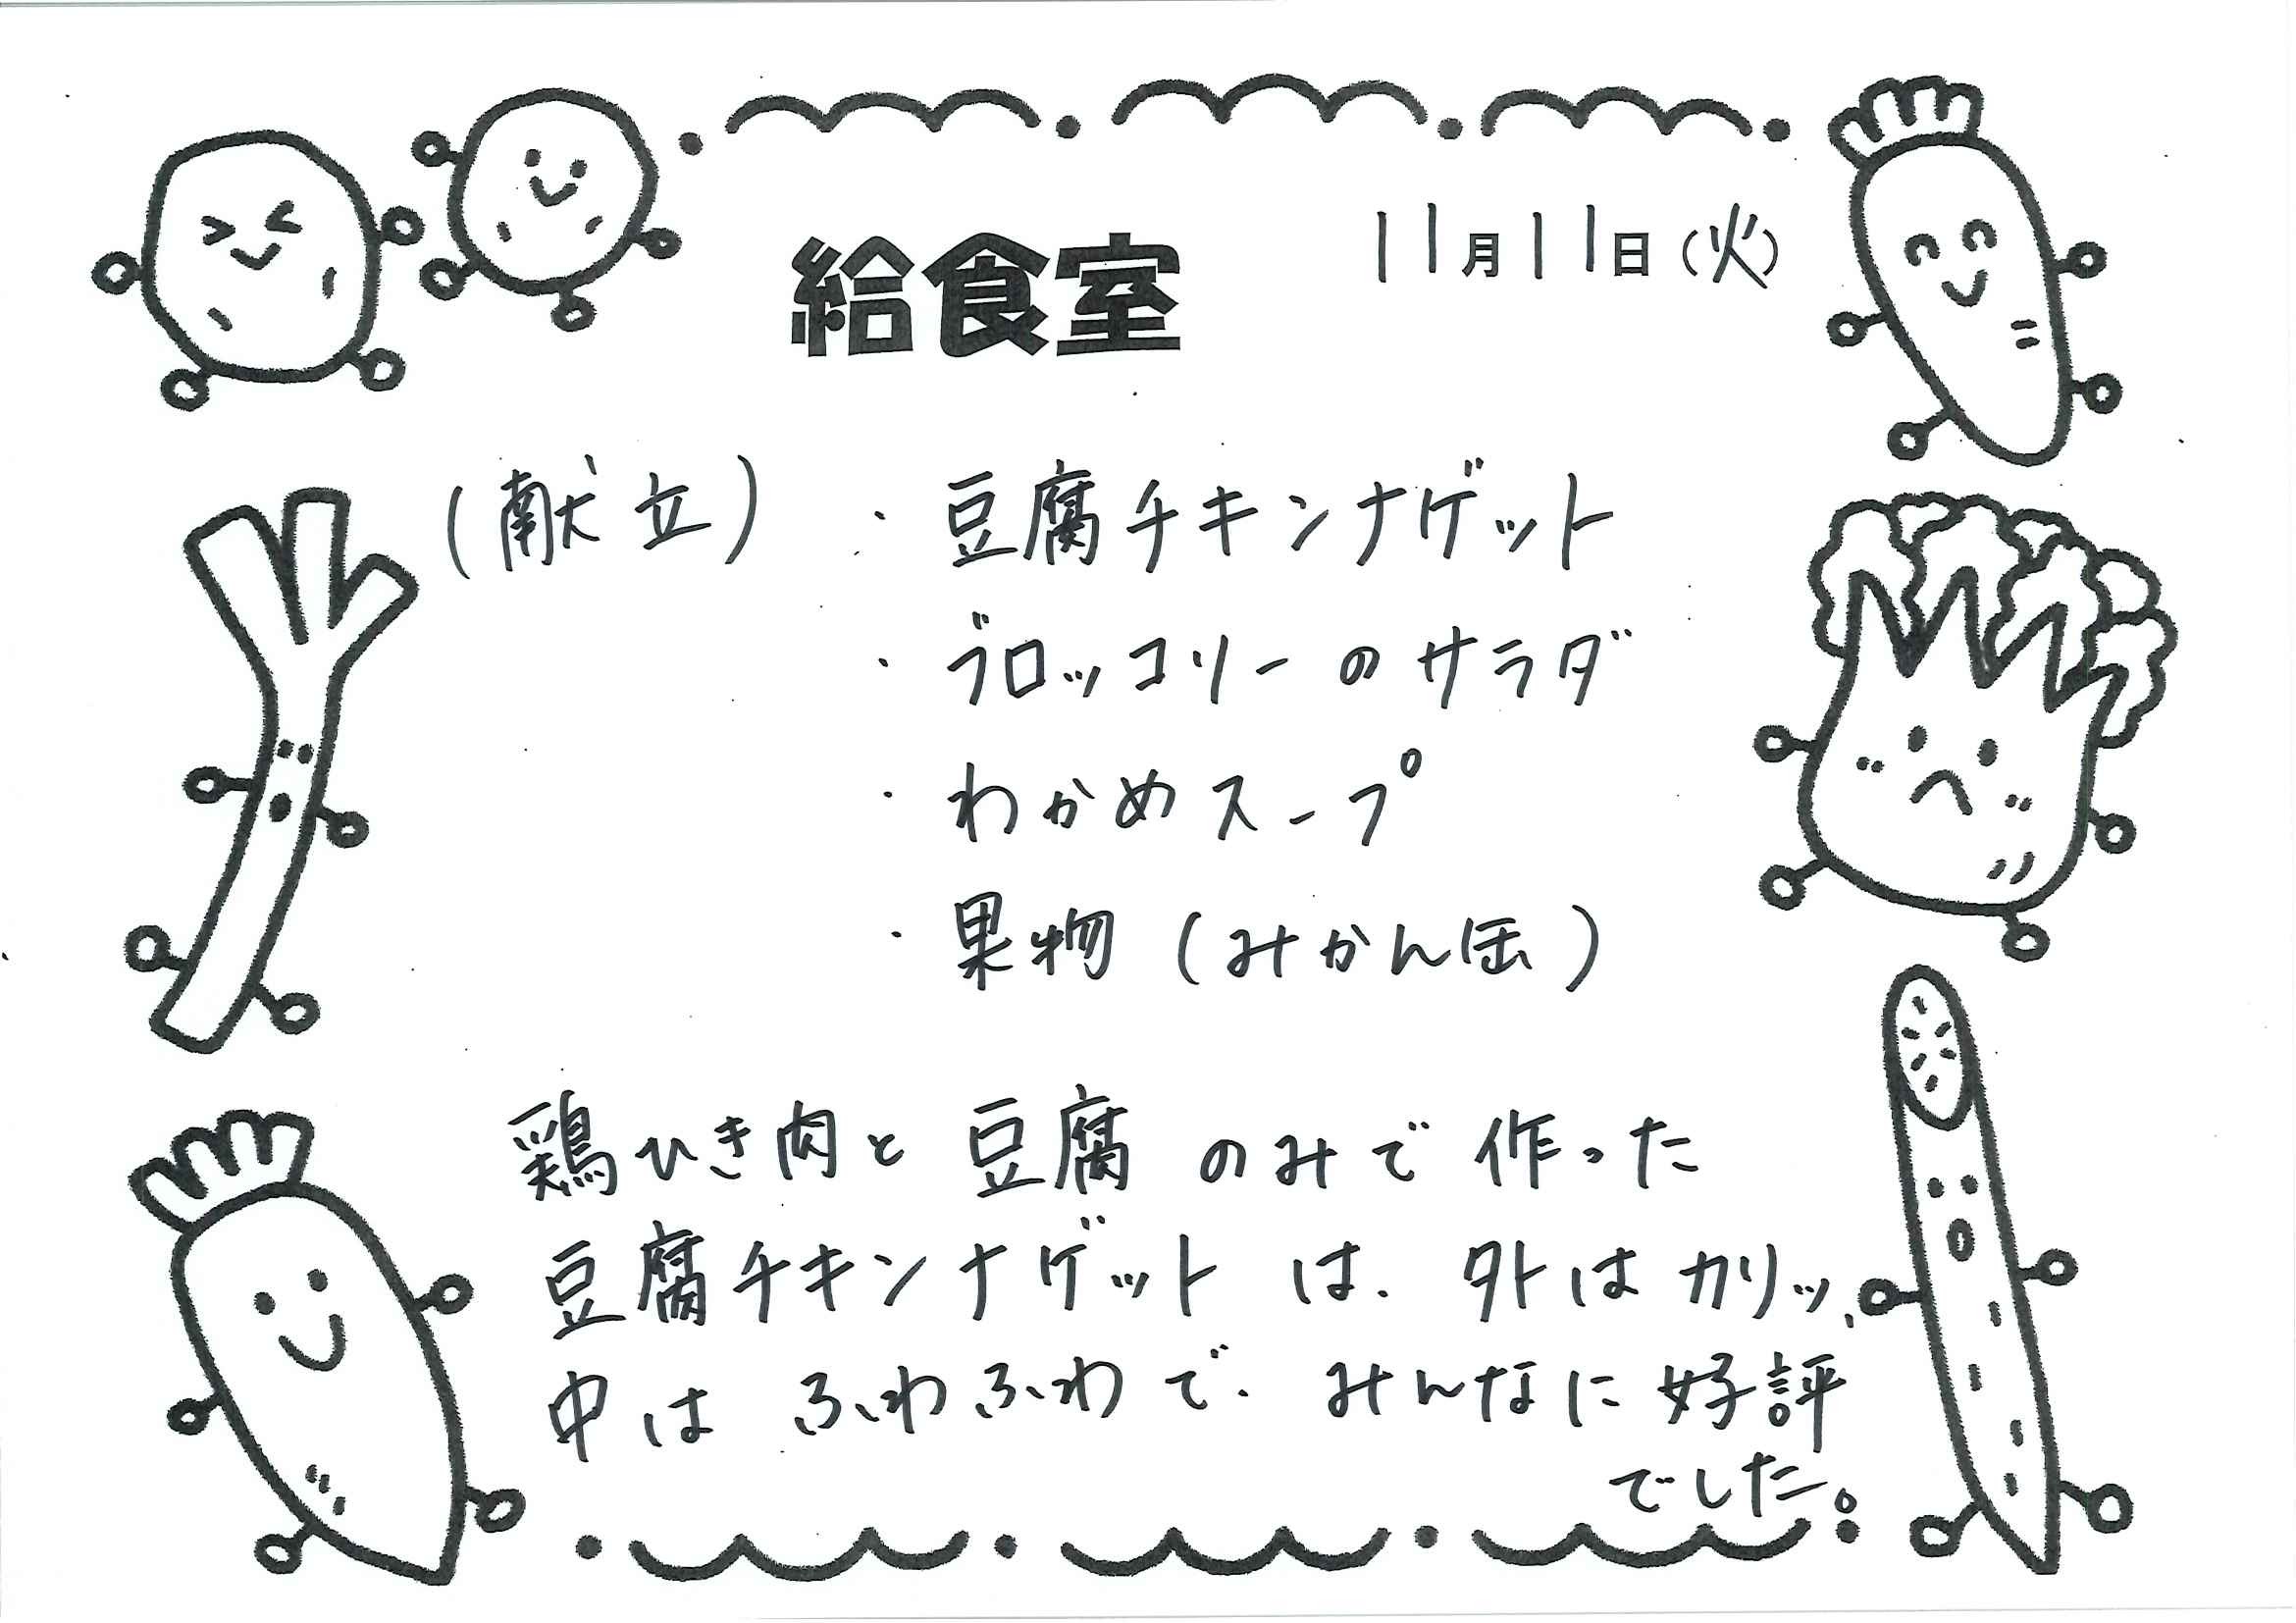 11月11日(火)
給食室
(献立) ・豆腐チキンナゲット
・ブロッコリーのサラダ
・わかめスープ
・果物(みかん缶)
鶏ひき肉と豆腐のみで作った
豆腐チキンナゲットは、外はカリッ、
中はふわふわで、みんなに好評
でした。